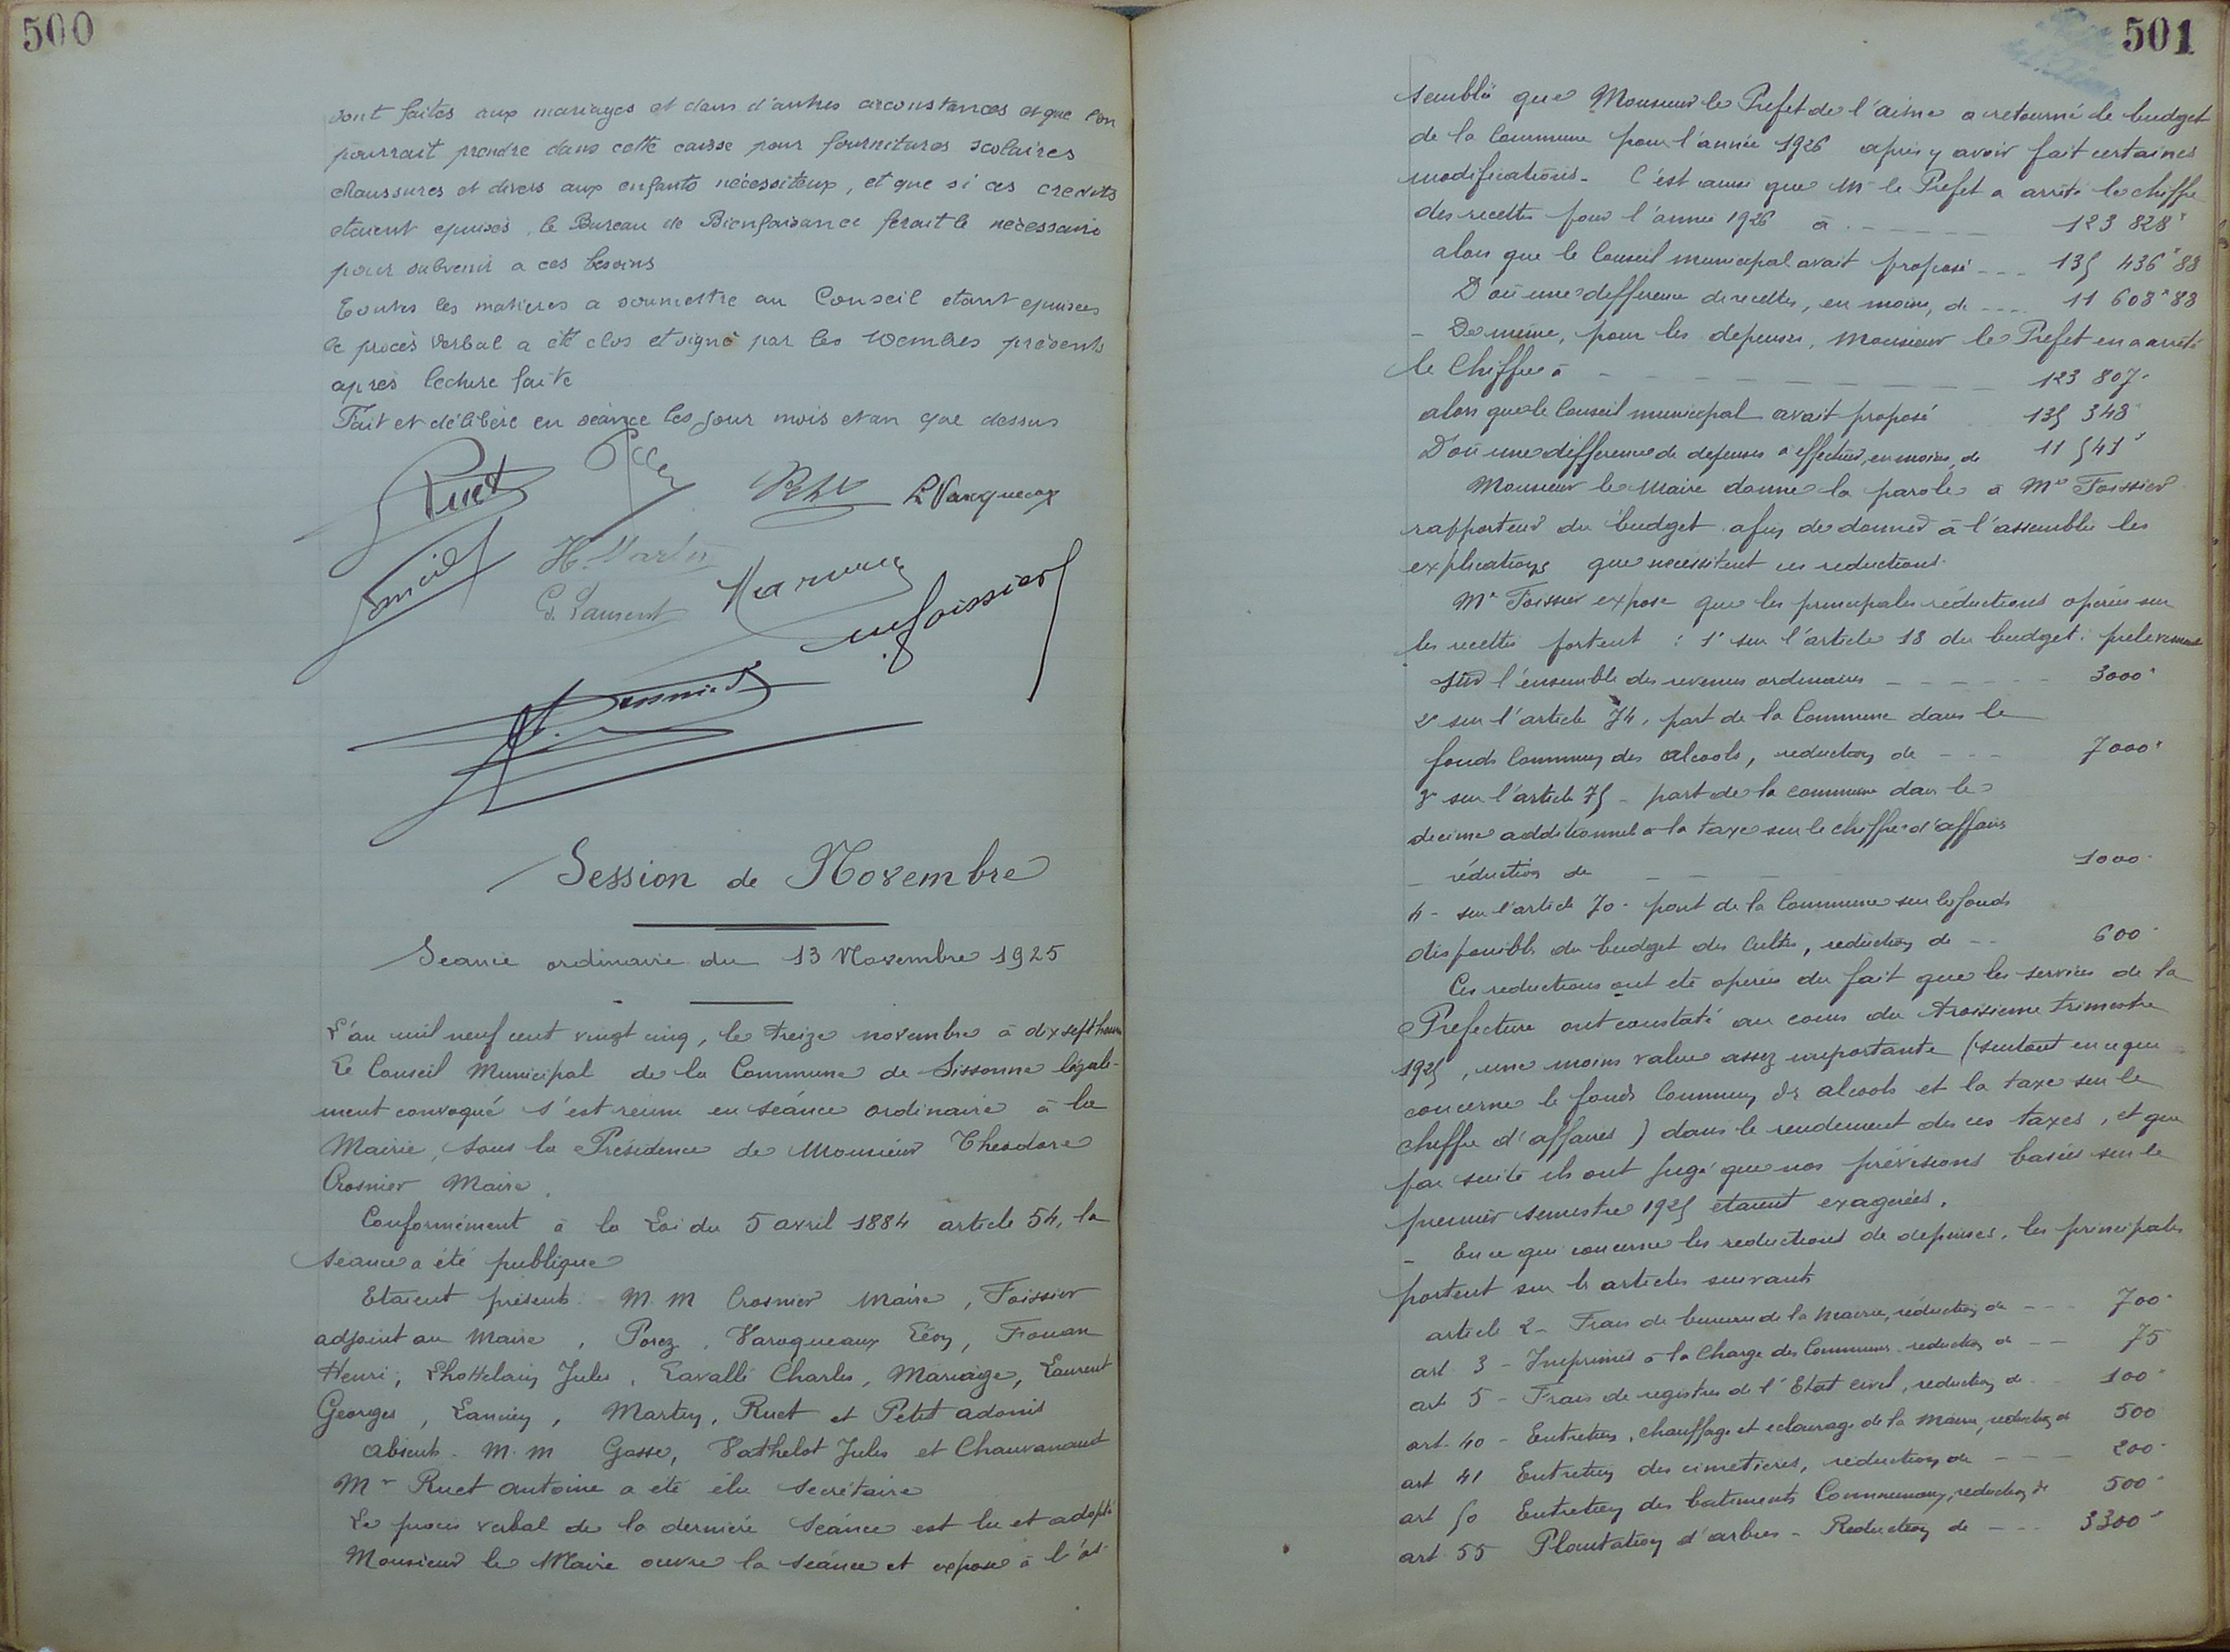 500
sont faites aux mariages et dans d'autres circonstances et que l'on
pourrait prendre dans cette caisse pour fournitures scolaires
chaussures et divers aux enfants nécessiteux, et que si ces credits
etaient epuisés, le Bureau de Bienfaisance ferait le necessaire
pour subvenir a ces besoins
Toutes les matieres a soumettre au Conseil etant epuisees
le procès verbal a été clos et signé par les Membres présents
après lecture faite
Fait et délibéré en séance les jour mois et an que dessus
Ruet
Petit L Varoqueaux
Lanciey H. Martin
G. Laurent Mariaige Foissier
Crosnier
Session de Novembre
Seance ordinaire du 13 Novembre 1925
L'an mil neuf cent vingt cinq, le treize novembre à dix sept heures
Le Conseil Municipal de la Commune de Sissonne légale-
ment convoqué s'est réuni en séance ordinaire à la
Mairie, sous la Présidence de Monsieur Theodore
Crosnier Maire.
Conformément à la Loi du 5 avril 1884 article 54, la
séance a été publique
Etaient présents M. M Crosnier Maire, Foissier
adjoint au Maire, Porez, Varoqueaux Léon, Fouan
Henri, Lhottelain Jules, Lavalli Charles, Mariaige, Laurent
Georges, Lanciey, Martin, Ruet et Petit adonis
absents. M. M Gosse, Vathelot Jules et Chauvanaud
Mr Ruet Antoine a été élu Secrétaire
Le procès verbal de la derniere Séance est lu et adopté
Monsieur le Maire ouvre la séance et expose à l'as-
501
semblée que Monsieur le Prefet de l'aisne a retourné le budget
de la Commune pour l'année 1926 après y avoir fait certaines
modifications - C'est ainsi que Mr le Prefet a arrêté le chiffre
des recettes pour l'année 1926 à - - - - - - 123 828"
alors que le Conseil municipal avait proposé - - - 135 436"88
D'où une difference de recettes, en moins, de - - - - 11 608"88
- De même, pour les depenses, Monsieur le Prefet en a arrêté
le Chiffre à - - - - - - - - - - 123 807"
alors que le Conseil municipal avait proposé 135 348"
D'où une difference de depenses à effectuer, en moins, de 11 541"
Monsieur le Maire donne la parole à Mr Foissier
rapporteur du budget afin de donner à l'assemblée les
explications que necessitent ces reductions.
Mr Foissier expose que les principales réductions opérées sur
les recettes portent : 1° sur l'article 18 du budget: prelevement
sur l'ensemble des revenus ordinaires - - - - - - 3000"
2° sur l'article 74, part de la Commune dans le
fonds Commun des alcools, reduction de - - - 7000"
3° sur l'article 75 - part de la commune dans le
decime additionnel à la taxe sur le chiffre d'affaires
- réduction de - - - - 1000"
4 - sur l'article 70 - part de la Commune sur les fonds
disponibles du budget des Cultes, reduction de - - 600"
Ces reductions ont été opérées du fait que les services de la
Prefecture ont constaté au cours du troisieme trimestre
1925, une moins value assez importante (surtout en ce qui
concerne le fonds Commun des alcools et la taxe sur le
chiffre d'affaires) dans le rendement de ces taxes, et que
par suite ils ont jugé que nos prévisions basées sur le
premier semestre 1925 etaient exagerées.
- En ce qui concerne les reductions de depenses, les principales
portent sur les articles suivants
article 2 - Frais de bureau de la Mairie, réduction de - - - 700"
art. 3 - Imprimés à la Charge des Communes reduction de - - 75
art 5 - Frais de registres de l'Etat civil, reduction de - - 100"
art. 40 - Entretien, chauffage et eclairage de la Mairie, reduction de 500
art 41 Entretien des cimetieres, reduction de - - - - 200"
art 50 Entretien des batiments Communaux, reduction de 500"
art. 55 Plantation d'arbres - Reduction de - - - - 3300"